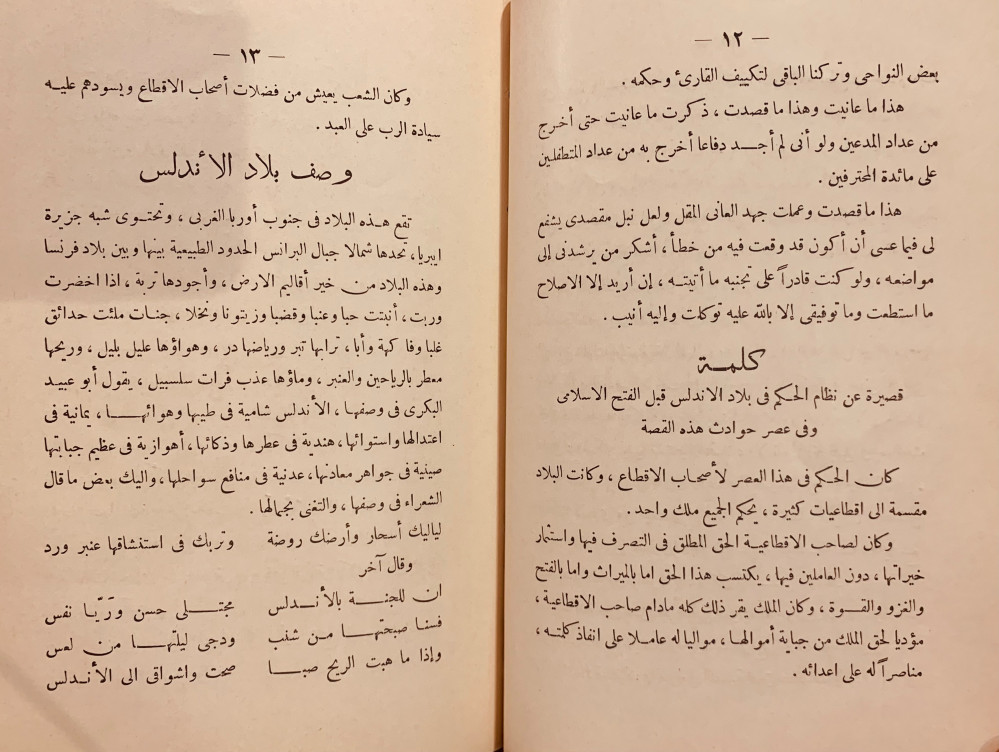 — ١٢ —
بعض النواحى وتركنا الباقى لتكييف القارئ وحكمه .
هذا ما عانيت وهذا ما قصدت ، ذكرت ما عانيت حتى أخرج
من عداد المدعين ولو أنى لم أجد دفاعا أخرج به من عداد المتطفلين
على مائدة المحترفين .
هذا ما قصدت وعملت جهد العانى المقل ولعل نبل مقصدى يشفع
لى فيما عسى أن أكون قد وقعت فيه من خطأ ، أشكر من يرشدنى إلى
مواضعه ، ولو كنت قادراً على تجنبه ما أتيته ، إن أريد إلا الاصلاح
ما استطعت وما توفيقى إلا بالله عليه توكلت وإليه أنيب .
كلمة
قصيرة عن نظام الحكم فى بلاد الاندلس قبل الفتح الاسلامى
وفى عصر حوادث هذه القصة
كان الحكم فى هذا العصر لأصحاب الاقطاع ، وكانت البلاد
مقسمة الى اقطاعيات كثيرة ، يحكم الجميع ملك واحد .
وكان لصاحب الاقطاعية الحق المطلق فى التصرف فيها واستثمار
خيراتها ، دون العاملين فيها ، يكتسب هذا الحق اما بالميراث واما بالفتح
والغزو والقوة ، وكان الملك يقر ذلك كله مادام صاحب الاقطاعية ،
مؤديا لحق الملك من جباية أموالها ، مواليا له عاملا على انفاذ كلمته ،
مناصراً له على اعدائه .
— ١٣ —
وكان الشعب يعيش من فضلات أصحاب الاقطاع ويسودهم عليه
سيادة الرب على العبد .
وصف بلاد الأندلس
تقع هذه البلاد فى جنوب أوربا الغربى ، وتحتوى شبه جزيرة
ايبريا ، تحدها شمالا جبال البرانس الحدود الطبيعية بينها وبين بلاد فرنسا
وهذه البلاد من خير أقاليم الارض ، وأجودها تربة ، اذا اخضرت
وربت ، أنبتت حبا وعنبا وقضبا وزيتونا ونخلا ، جنات ملئت حدائق
غلبا وفاكهة وأبا ، ترابها تبر ورياضها در ، وهواؤها عليل بليل ، وريحها
معطر بالرياحين والعنبر ، وماؤها عذب فرات سلسبيل ، يقول أبو عبيد
البكرى فى وصفها ، الأندلس شامية فى طيبها وهوائها ، يمانية فى
اعتدالها واستوائها ، هندية فى عطرها وذكائها ، أهوازية فى عظيم جبايتها
صينية فى جواهر معادنها ، عدنية فى منافع سواحلها ، واليك بعض ما قال
الشعراء فى وصفها ، والتغنى بجمالها .
لياليك أسحار وأرضك روضة وتربك فى استنشاقها عنبر ورد
وقال آخر
ان للجنة بالأندلس مجتلى حسن وريّا نفس
فسنا صبحتها من شنب ودجى ليلتها من لعس
وإذا ما هبت الريح صبا صحت واشواقى الى الأندلس